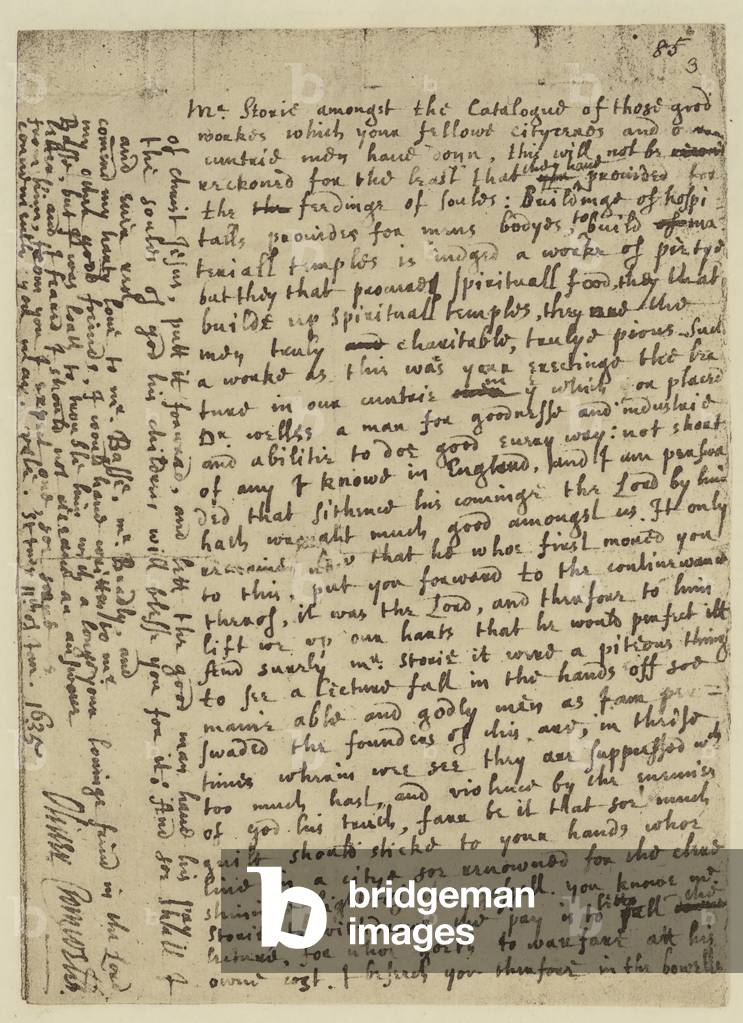 85
3
Mr Storie amongst the Catalogue of those good
workes which your fellowe citycenes and o
cuntrie men have donn, this will not be
reckoned for the least that they have provided for
the feedinge of soules: Buildinge of hospi-
talls provides for mens bodyes, to build ma-
teriall temples is iudged a worke of pietye
but they that procured spirituall food, they that
builde up spirituall temples, they are the
men truly charitable, trulye pious. Such
a worke as this was your erectinge the lec
ture in our cuntrie in ye which you placed
Dr. Welles a man for goodnesse and industrie
and abilitie to doe good every way: not short
of any I knowe in England, and I am perswa
ded that sithence his cominge the Lord by him
hath wrought much good amongst us. It only
remaines now that he whoe first moved you
to this, put you forward to the continewance
thereof, it was the Lord, and therfore to him
lift we up our harts that he would perfect itt
And surely mr. Storie it were a piteous thing
to see a lecture fall in the hands off soe
manie able and godly men as I am per=
swaded the founders of this are, in theise
times wherein wee see they are suppressed wth
too much hast, and violence by the enemies
of god his truth, farr be it that soe much
guilt should sticke to your hands whoe
live in a citye soe renowned for the clere
shininge light of the gospell. you knowe mr
Storie to withdrawe the pay is to lett fall the
lecture, for whoe goeth to warfare att his
owne cost. I beseech you therfore in the bowells
of christ Jesus, putt it forward, and lett the good man have his pay
the soules of god his children, will blesse you for it: And soe shall I
and ever rest your lovinge frind in the Lord
comend my harty love to mr. Basse, mr. Bradly, and
my other good friends, I would have written to mr
Basse, but I was loath to trouble him with a longe
letter, and I feared I should not receave an answear
from him, from you I expect one, soe soone as
conveniently you may. vale. St Ives 11th of Jan. 1635
Oliver Cromwell.
b
bridgeman
images